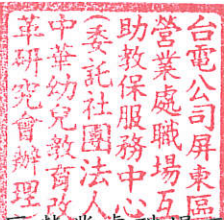 台電公司屏東區
營業處職場互
助教保服務中心
(委託社團法人
中華幼兒教育改
革研究會辦理